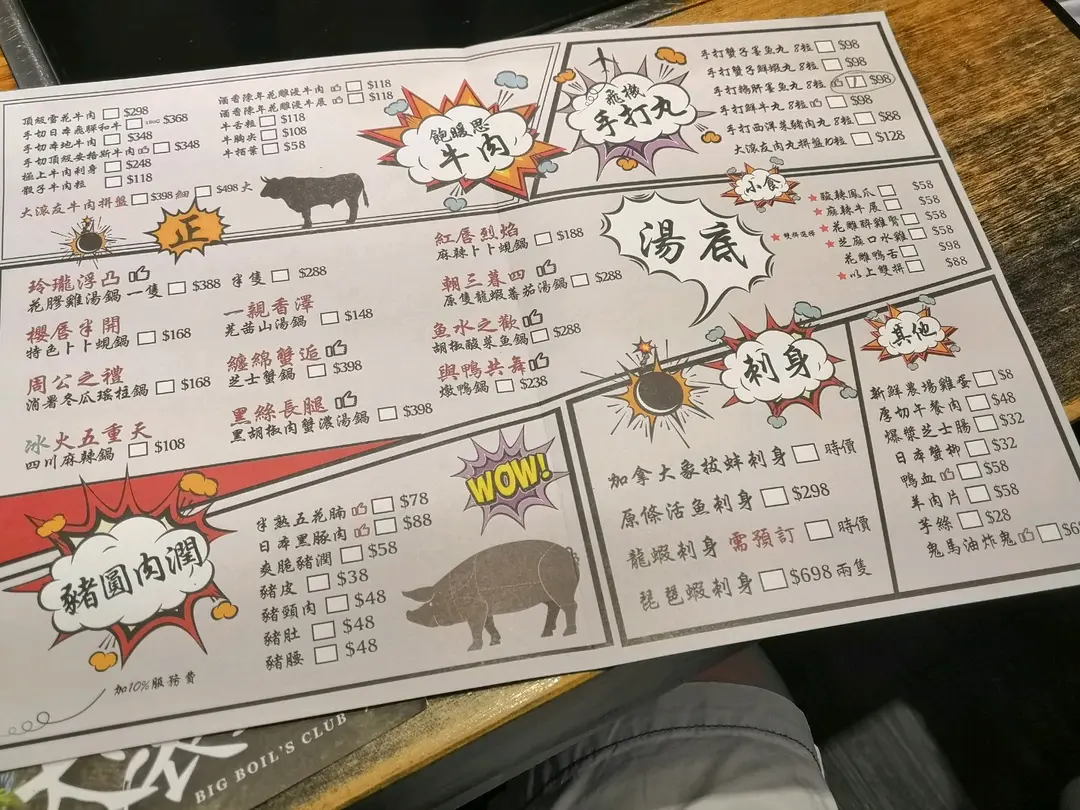 飽暖思
牛肉
頂級雪花牛肉 $298
手切日本飛驒和牛 $368
手切本地牛肉 $348
手切頂級安格斯牛肉 $348
極上牛肉刺身 $248
骰子牛肉粒 $118
大滾友牛肉拼盤 $398 細 $498 大
酒香陳年花雕浸牛肉 $118
酒香陳年花雕浸牛展 $118
牛舌粒 $118
牛胸尖 $108
牛栢葉 $58
飛機
手打丸
手打蟹子墨魚丸 8粒 $98
手打蟹子鮮蝦丸 8粒 $98
手打鵝肝墨魚丸 8粒 $98
手打鮮牛丸 8粒 $98
手打西洋菜豬肉丸 8粒 $88
大滾友肉丸拼盤 $128
正
湯底
玲瓏浮凸
花膠雞湯鍋 一隻 $388 半隻 $288
櫻唇半開
特色卜卜蜆鍋 $168
周公之禮
消暑冬瓜瑤柱鍋 $168
冰火五重天
四川麻辣鍋 $108
一親香澤
芫茜山湯鍋 $148
纏綿蟹逅
芝士蟹鍋 $398
黑絲長腿
黑胡椒肉蟹濃湯鍋 $398
紅唇烈焰
麻辣卜卜蜆鍋 $188
朝三暮四
原隻龍蝦蕃茄湯鍋 $288
魚水之歡
胡椒酸菜魚鍋 $288
與鴨共舞
燉鴨鍋 $238
小食
酸辣鳳爪 $58
麻辣牛展 $58
花雕醉雞腎 $58
雙拼選擇
芝麻口水雞 $58
花雕鴨舌 $98
以上雙拼 $88
豬圓肉潤
半熟五花腩 $78
日本黑豚肉 $88
爽脆豬潤 $58
豬皮 $38
豬頸肉 $48
豬肚 $48
豬腰 $48
WOW!
刺身
加拿大象拔蚌刺身 時價
原條活魚刺身 $298
龍蝦刺身 需預訂 時價
琵琶蝦刺身 $698 兩隻
其他
新鮮農場雞蛋 $8
厚切午餐肉 $48
爆漿芝士腸 $32
日本蟹柳 $32
鴨血 $58
羊肉片 $58
芋絲 $28
鬼馬油炸鬼
加10%服務費
BIG BOIL'S CLUB